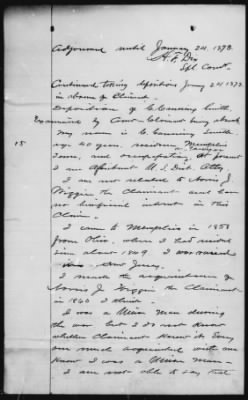 Adjourned until January 24, 1873.
Spl Comr.
Continued taking depositions Jany 24 1873
in absence of Claimant
Deposition of C. Cunning Smith.
Examined by Comr - Claimant being absent
My name is C. Cunning Smith
age 40 years, residence Memphis
Tenn, and occupation, at present
I am Assistant U.S. Dist. Atty,
I am not related to Norris J.
Wiggin the Claimant and have
no beneficial interest in this
Claim.
15
I came to Memphis in 1858
from Ohio, where I had resided
since about 1849 I was raised
New Jersey.
I made the acquaintance of
Norris J. Wiggin the Claimant
in 1860 I think.
I was a Union Man during
the war but I do not know
whether Claimant knew it. Every
one much acquainted with me
knew I was a Union Man.
I am not able to say that